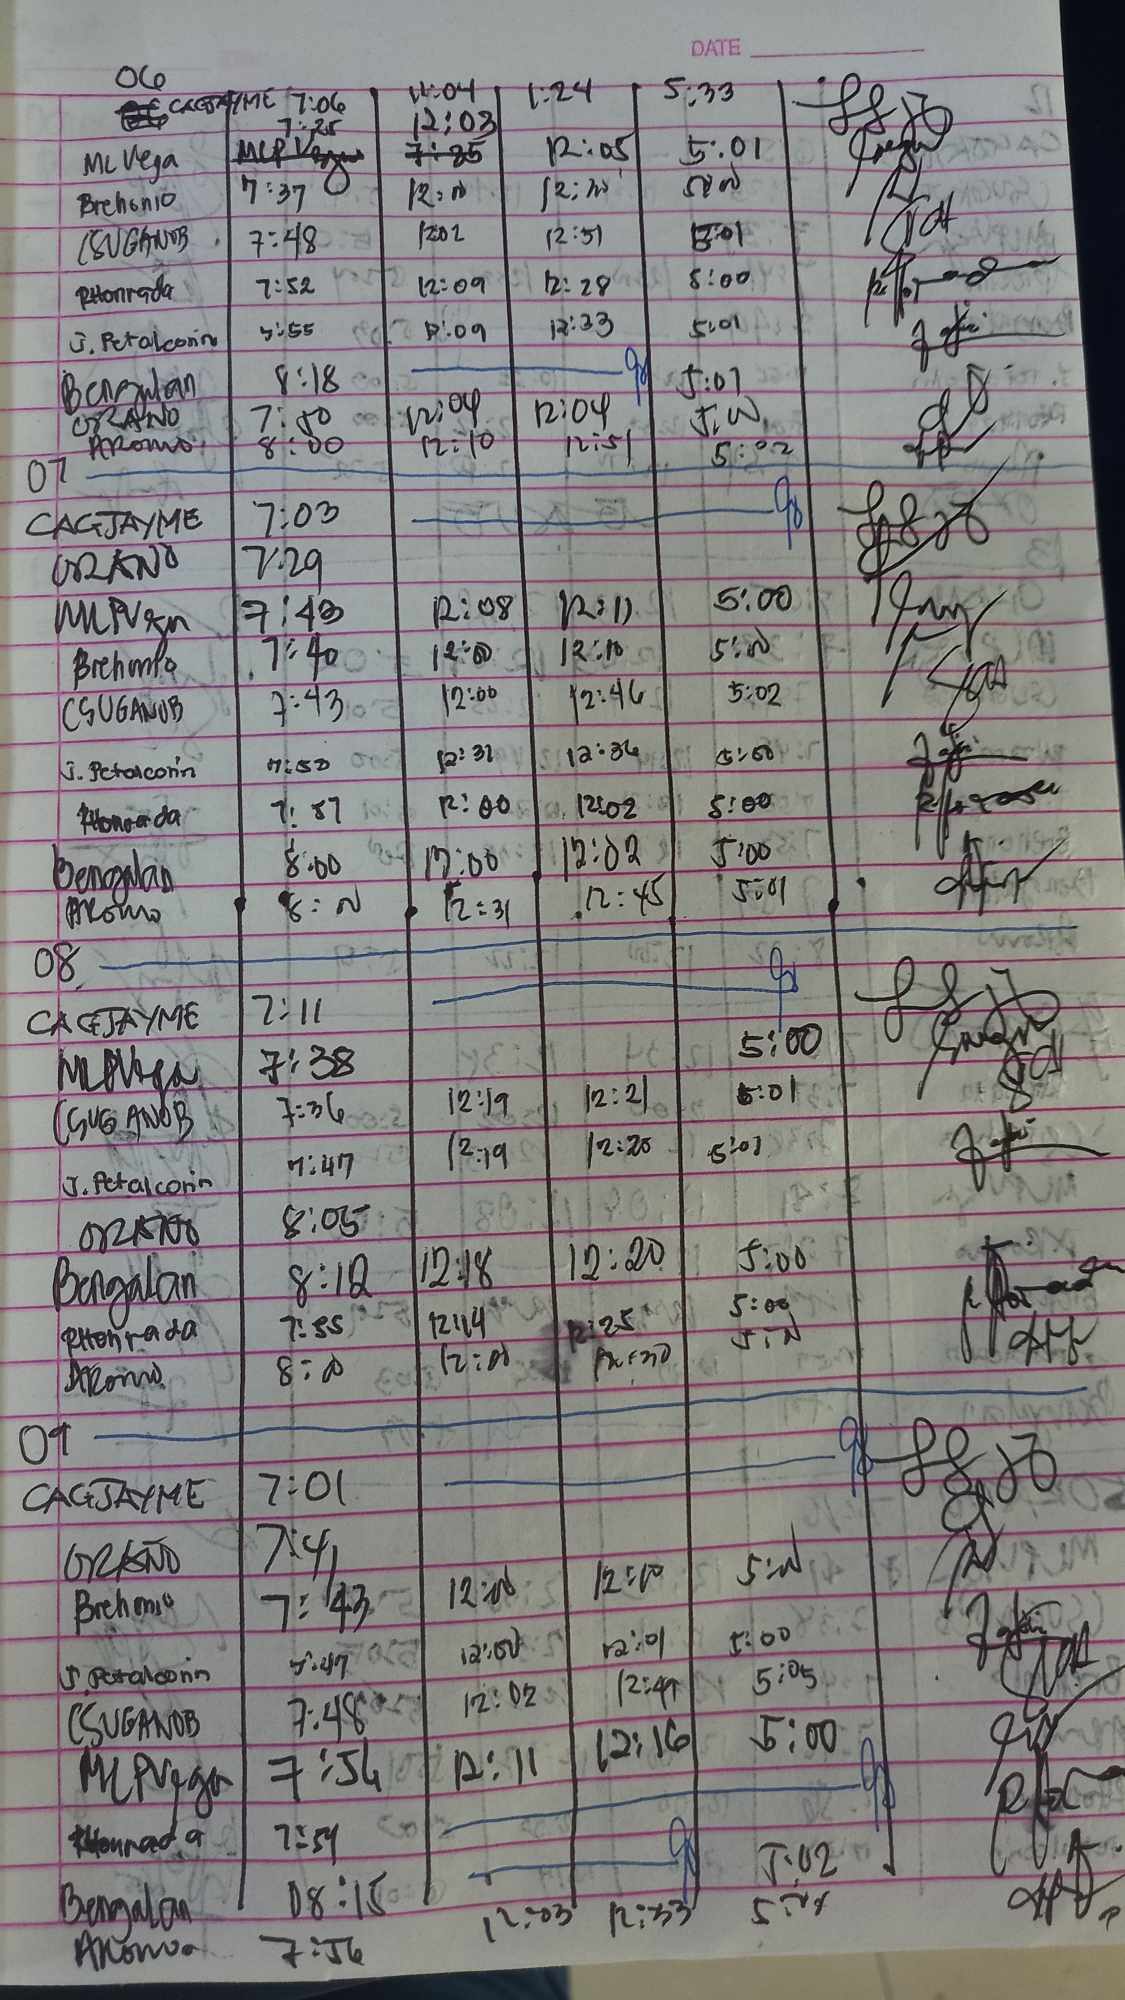 DATE
06
CAGJAYME 7:06 11:04 1:24 5:33
7:25 12:03
ML Vega 12:05 5:01
Brehonio 7:37 12:00 12:10 5:00
CSUGANOB 7:48 1202 12:51 5:01
RHonrada 7:52 12:09 12:28 5:00
J. Petalcorin 7:55 12:09 12:33 5:01
Bengulan 8:18 5:01
ORANO 7:50 12:04 12:04 5:00
ARomo 8:00 12:10 12:51 5:02
07
CAGJAYME 7:03
ORANO 7:29
MLPVega 7:43 12:08 12:11 5:00
Brehonio 7:40 12:00 12:10 5:00
CSUGANOB 7:43 12:00 12:46 5:02
J. Petalcorin 7:50 12:31 12:36 5:00
RHonrada 7:57 12:00 12:02 5:00
Bengulan 8:00 12:00 12:02 5:00
ARomo 8:00 12:31 12:45 5:01
08
CAGJAYME 7:11
MLPVega 7:38 5:00
CSUGANOB 7:36 12:19 12:21 5:01
J. Petalcorin 7:47 12:19 12:20 5:01
ORANO 8:05
Bengulan 8:12 12:18 12:20 5:00
RHonrada 7:55 12:14 12:25 5:00
ARomo 8:00 12:00 12:30 5:00
09
CAGJAYME 7:01
ORANO 7:41
Brehonio 7:43 12:00 12:00 5:00
J. Petalcorin 7:47 12:00 12:01 5:00
CSUGANOB 7:48 12:02 12:49 5:05
MLPVega 7:56 12:11 12:16 5:00
RHonrada 7:59
Bengulan 08:15 5:02
ARomo 7:56 12:03 12:33